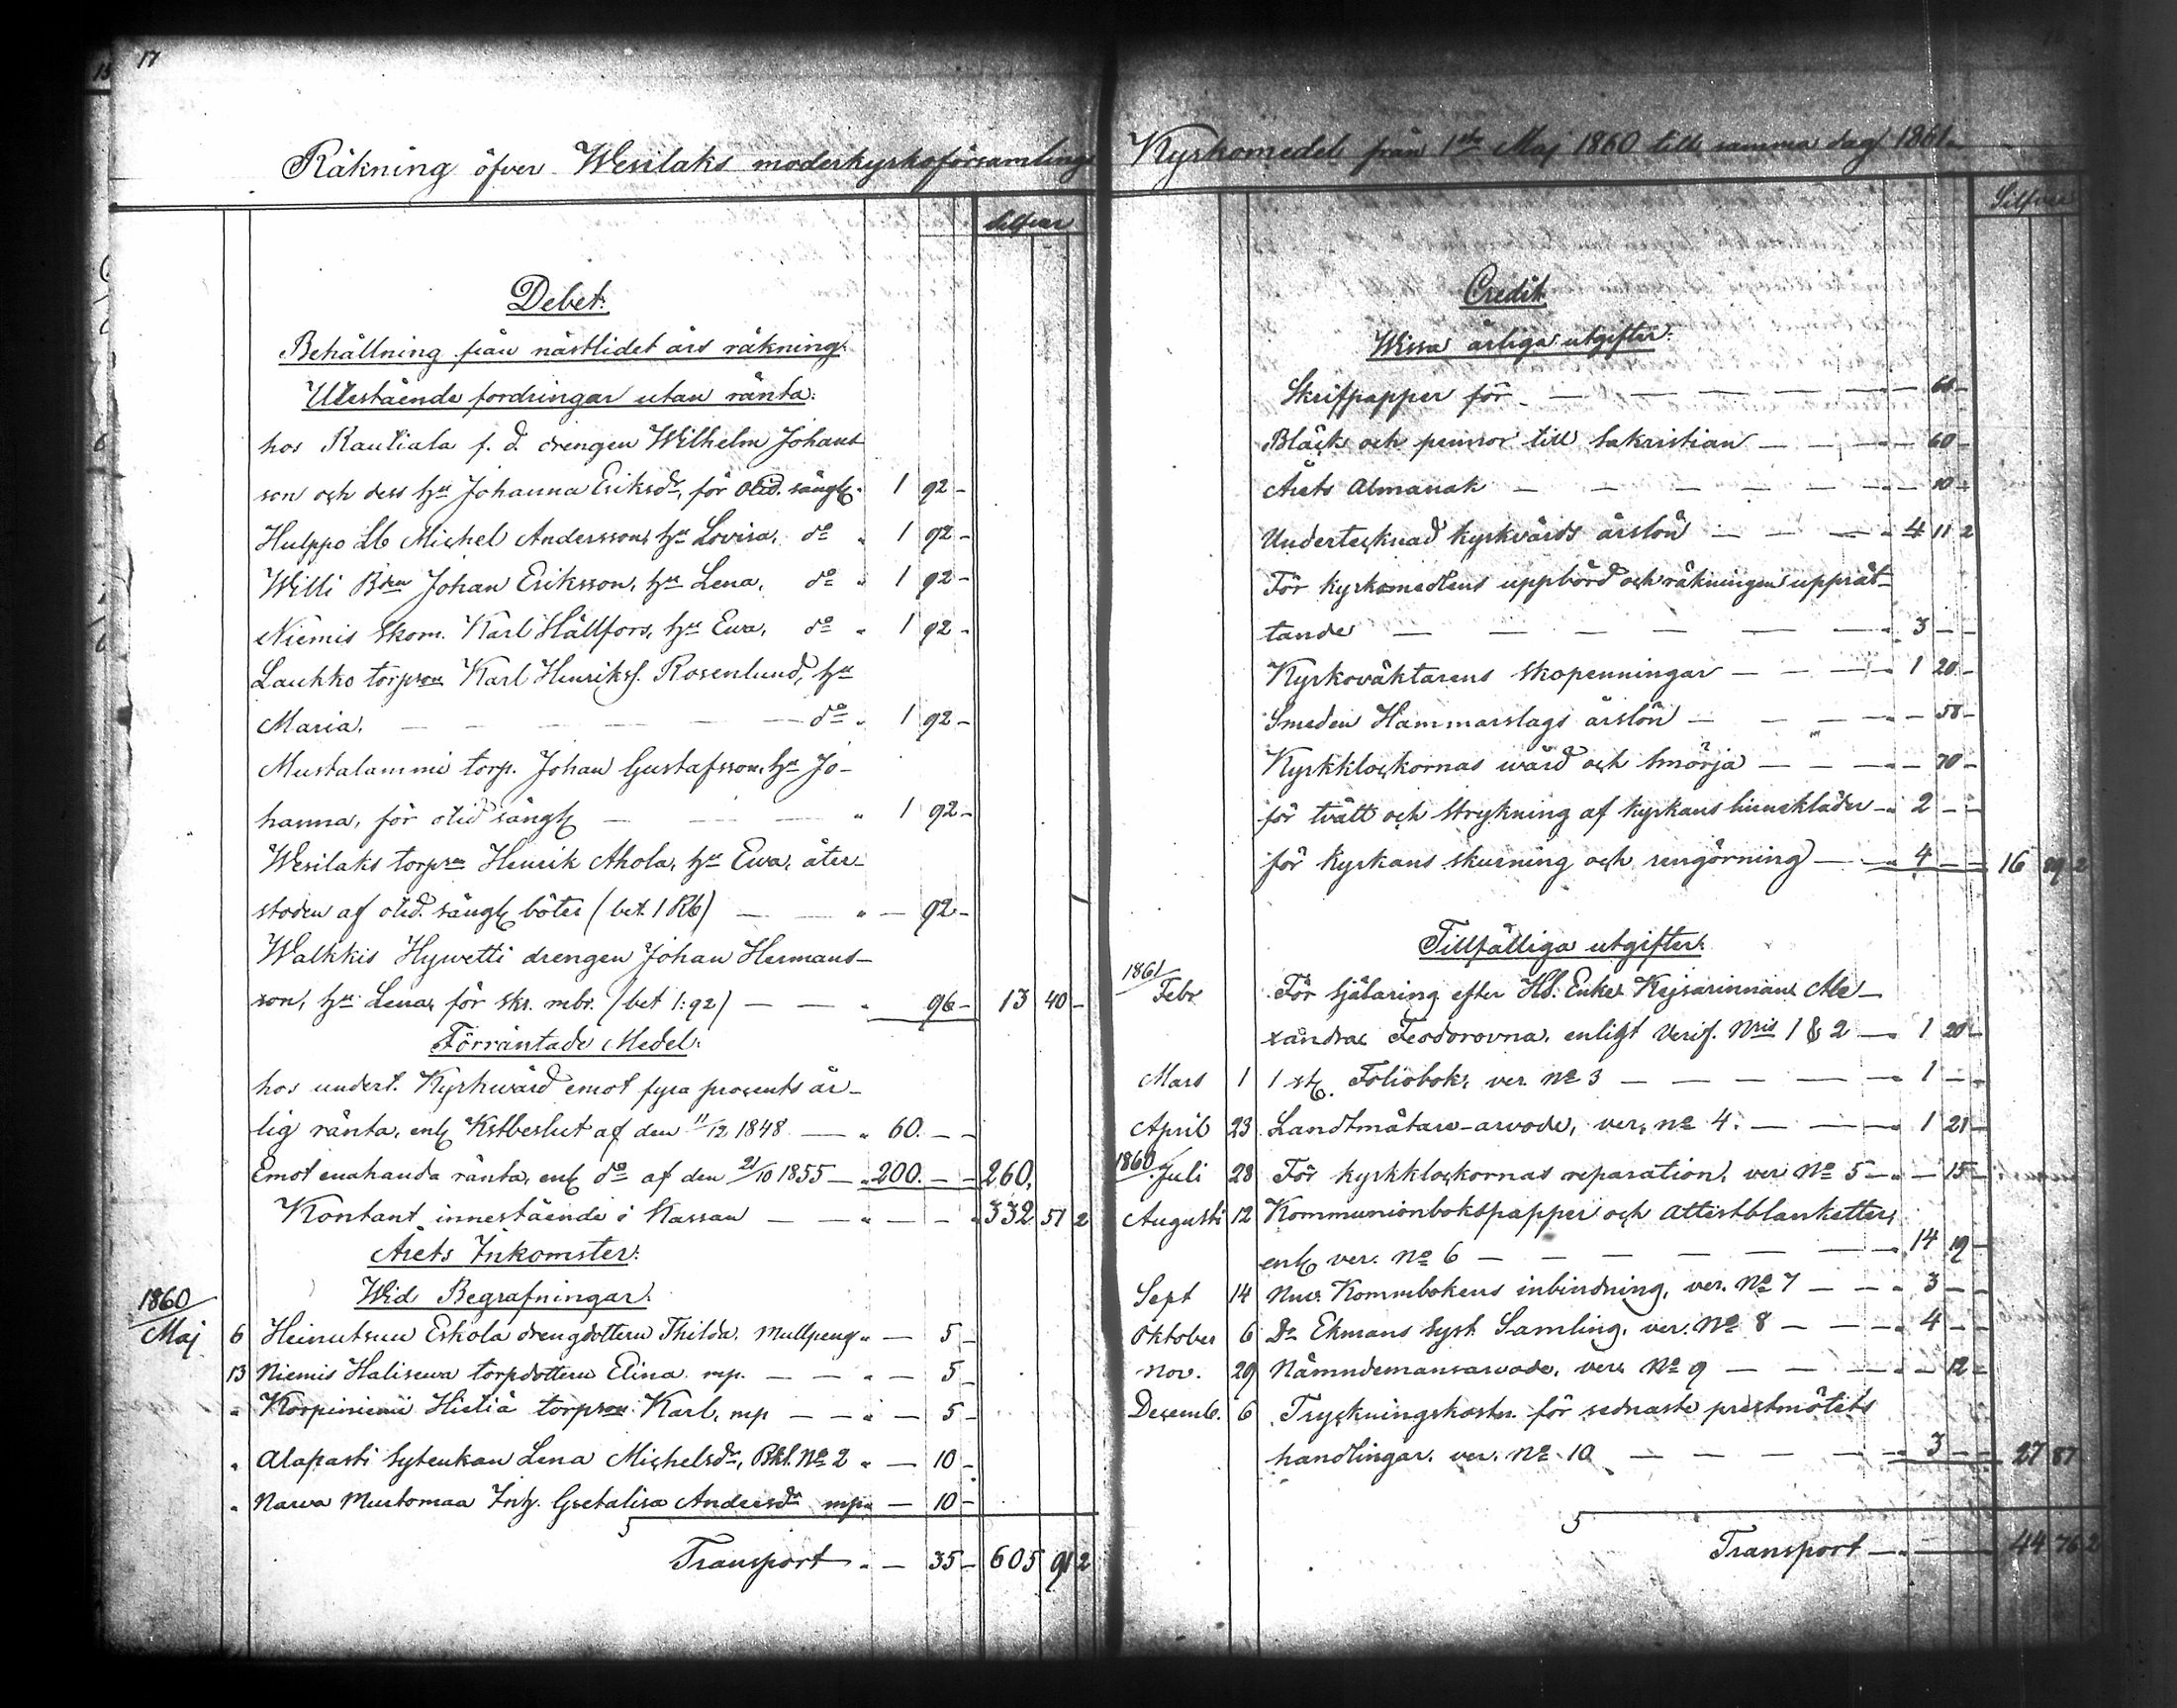 17
Räkning öfver Wesilaks moderkyrkoförsamlings Kyrkomedel från 1sta Maj 1860 till samma dag 1861.
Silfver
Debet.
Behållning från nästlidet års räkning.
Utestående fordringar utan ränta.
hos Rautiala f. d. drengen Wilhelm Johans-
son och dess hu Johanna Eriksdr, för otid. sängl. 1 92 -
Hulppo Lb Michel Andersson, hu Lovisa, do " 1 92 -
Willi Bden Johan Eriksson, hu Lena, do " 1 92 -
Niemis Skom. Karl Hällfors, hu Ewa, do " 1 92 -
Laukko torpson Karl Henrikss. Rosenlund, hu
Maria. — — — — — do " 1 92 -
Mustalammi torp. Johan Gustafsson, hu Jo-
hanna, för otid sängl — — — " 1 92 -
Wesilaks torpson Henrik Ahola, hu Ewa, åter-
stoden af otid. sängl böter (bet. 1 Rb) — — " — 92 -
Walkkis Hywetti drengen Johan Hermans-
son, hu Lena, för skr. mbr. (bet 1:92) — — " 96 - 13 40 -
Förräntade Medel.
hos undert. Kyrkwärd emot fyra procents år-
lig ränta, enl Kstbeslut af den 11/12 1848 — " 60. — —
Emot enahanda ränta, enl do af den 21/10 1855 — " 200. — — 260.
Kontant innestående i Kassan — — " — — " 332 51 2
Årets Inkomster.
Wid Begrafningar.
1860
Maj 6 Heinutsuu Eskola drengdottern Thilda. Mullpeng " — 5 -
13 Niemis Haliseva torpdottern Elina. mp. — — " — 5 -
" Korpiniemi Hietiä torpson Karl, mp — — " — 5 -
" Alapasti Sytenkan Lena Michelsdr, Bkl. No 2 " — 10 -
" Narva Murtomaa Inh. Gretalisa Andersdr mp " — 10 -
Transport " — 35 - 605 91 2
Silfver
Credit
Wissa årliga utgifter.
Skrifpapper för — — — — — " — 60 -
Bläck och pennor till Sakristian — — — " — 60 -
Årets Almanak — — — — — — " — 10 -
Undertecknad kyrkvärds årslön — — — " 4 11 2
För kyrkomedlens uppbörd och räkningens upprät-
tande — — — — — — " 3 — -
Kyrkoväktarens skopenningar — — — " 1 20 -
Smeden Hammarslags årslön — — — " — 58 -
Kyrkklockornas wård och smörja — — — " — 70 -
för tvätt och strykning af kyrkans linnekläder — " 2 — -
för Kyrkans skurning och rengörning — — " 4 — — 16 89 2
Tillfälliga utgifter.
1861
Febr För själaring efter Hd. Enke Kejsarinnan Ale-
xandra Feodorovna, enligt Verif. Nris 1 & 2 — " 1 20 -
Mars 1 1 st. Foliobok, ver. No 3 — — — — — " 1 — -
April 23 Landtmätare-arvode, ver, no 4. — — — " 1 21 -
1860
Juli 28 För kyrkklockornas reparation, ver No 5 — " — 15 -
Augusti 12 Kommunionbokspapper och attestblanketter,
enl ver. No 6 — — — — — — " 14 19 -
Sept 14 Nuv. Kommbokens inbindning, ver. No 7 — — " 3 — -
Oktober 6 Dr Ekmans Syst Samling. ver. No 8 — — — " 4 — -
Nov. 29 Nämndemansarvode, ver. No 9 — — — " — 12 -
Decemb. 6 Tryckningskostn. för sednaste prestmötets
handlingar. ver. No 10 — — — — " 3 — — 27 87
Transport — " — — 44 76 2